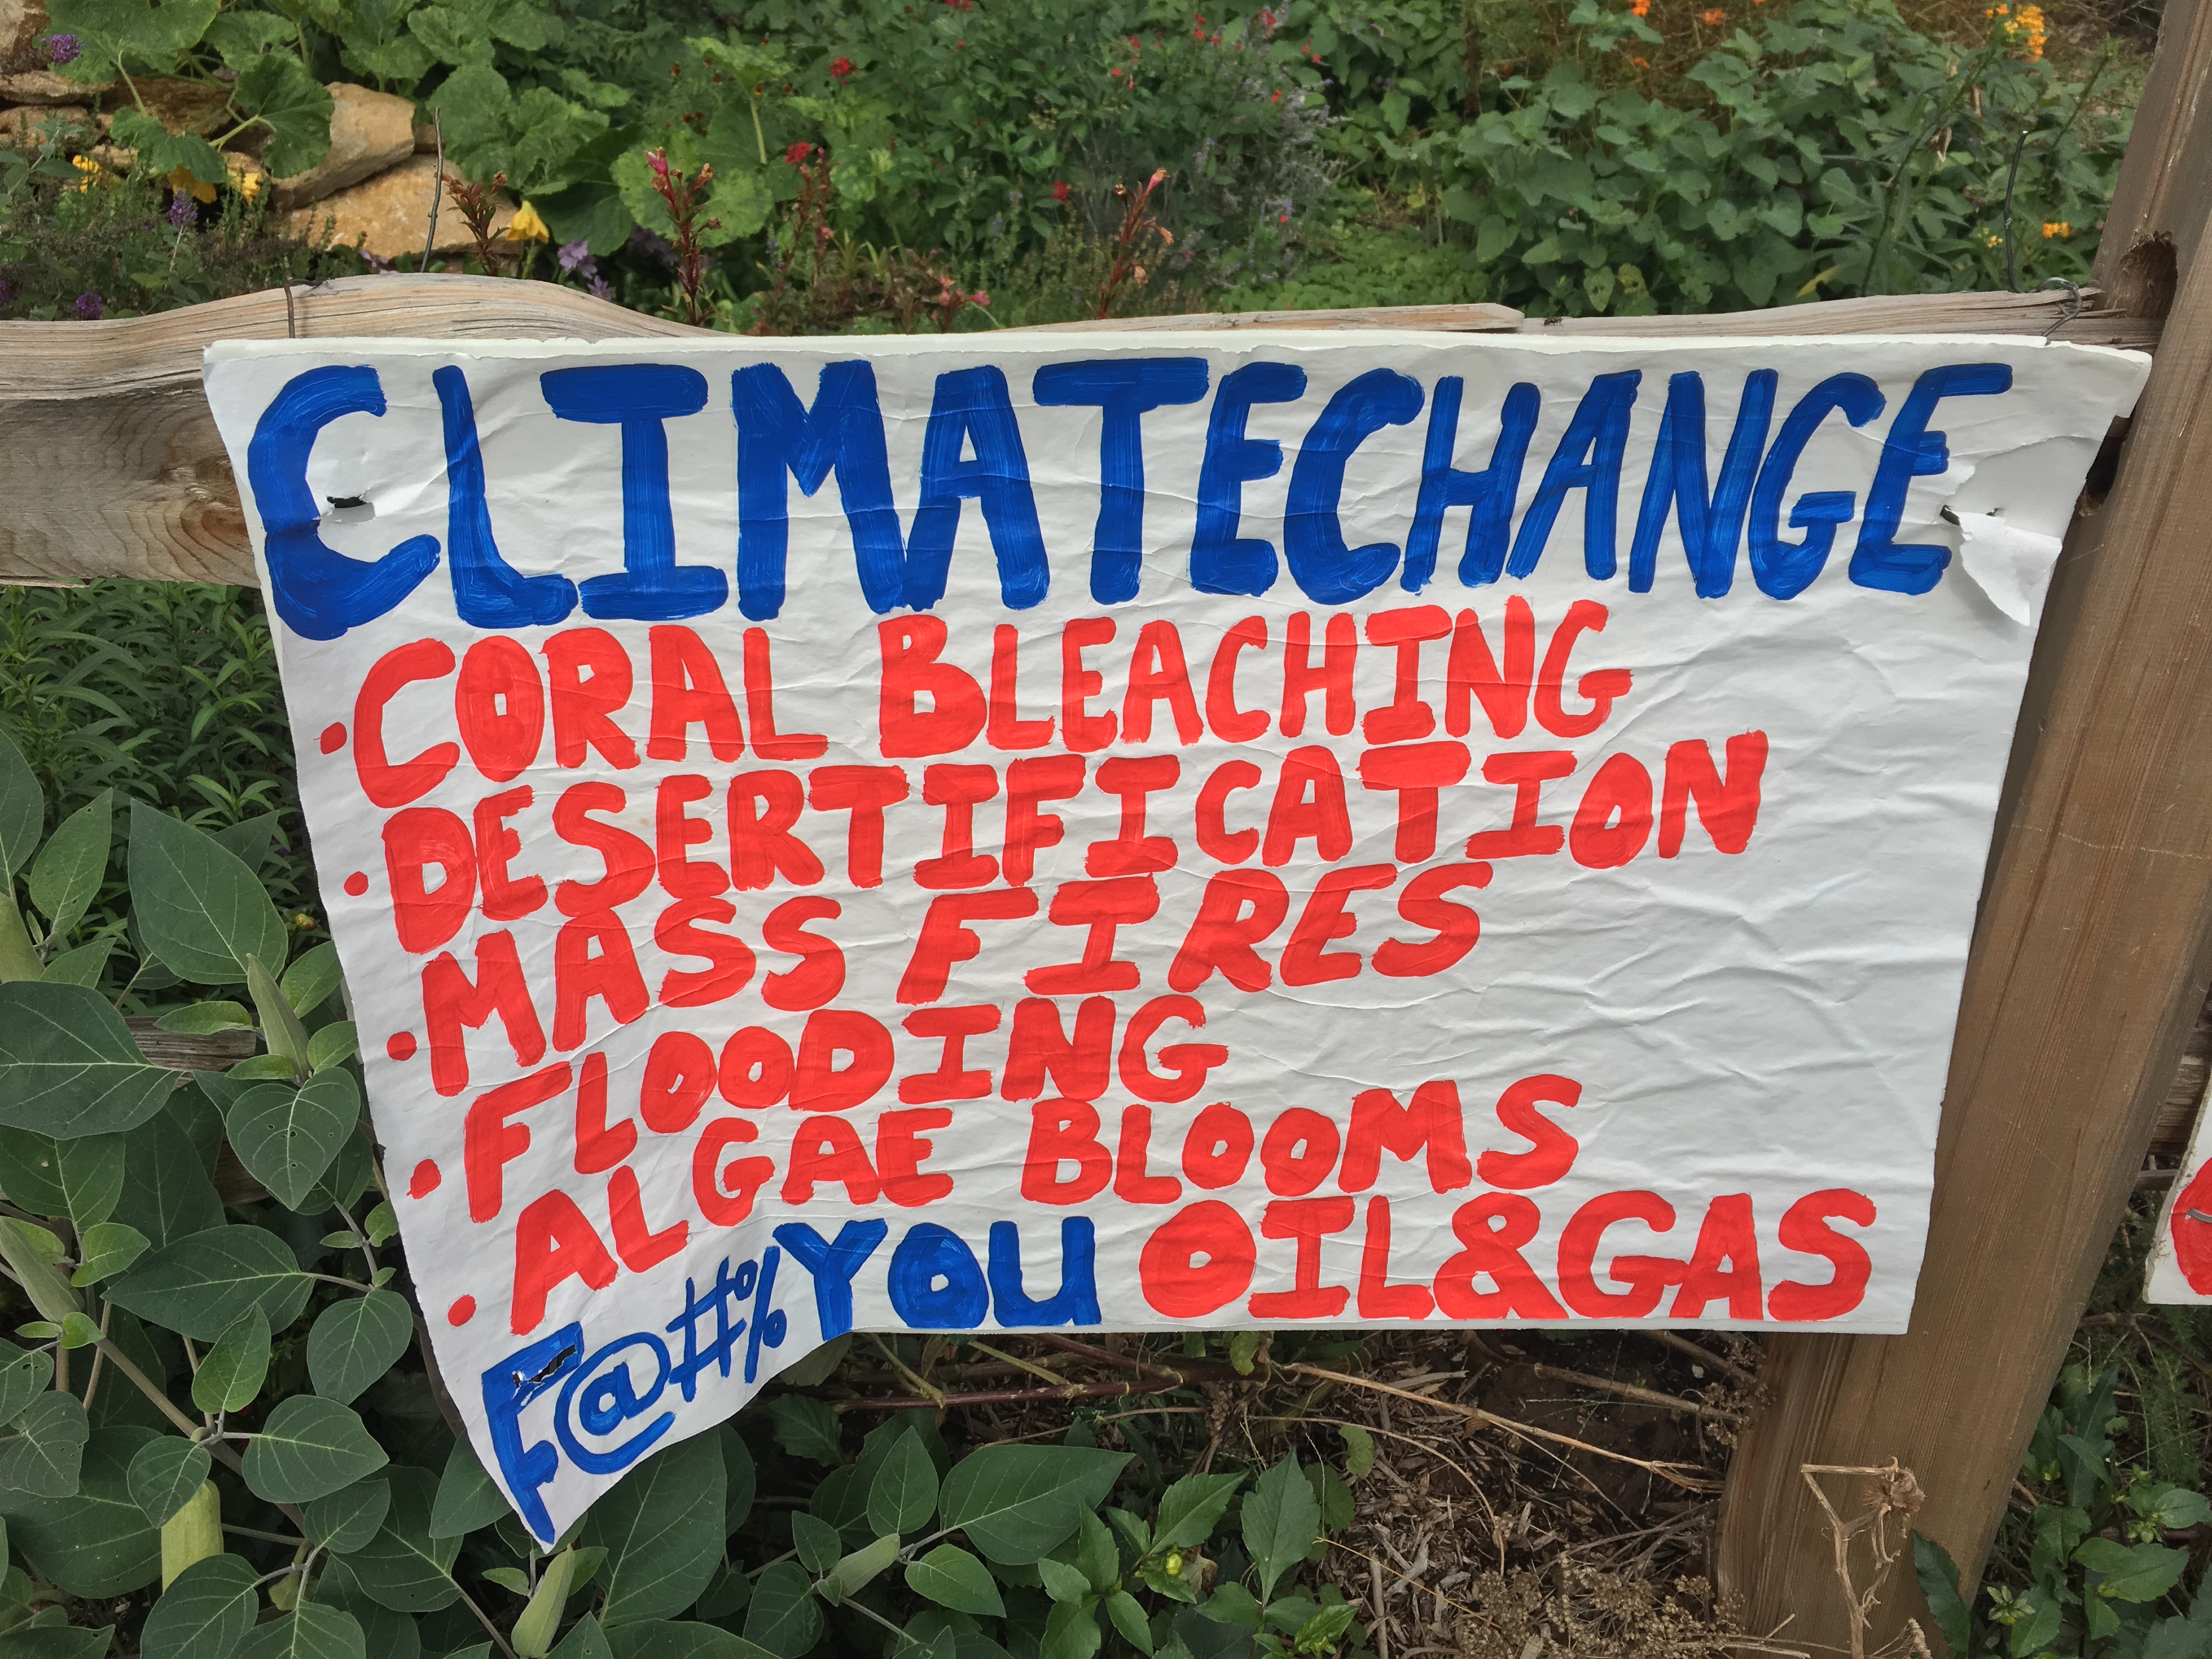 CLIMATECHANGE
• CORAL BLEACHING
• DESERTIFICATION
• MASS FIRES
• FLOODING
• ALGAE BLOOMS
F@#% YOU OIL&GAS